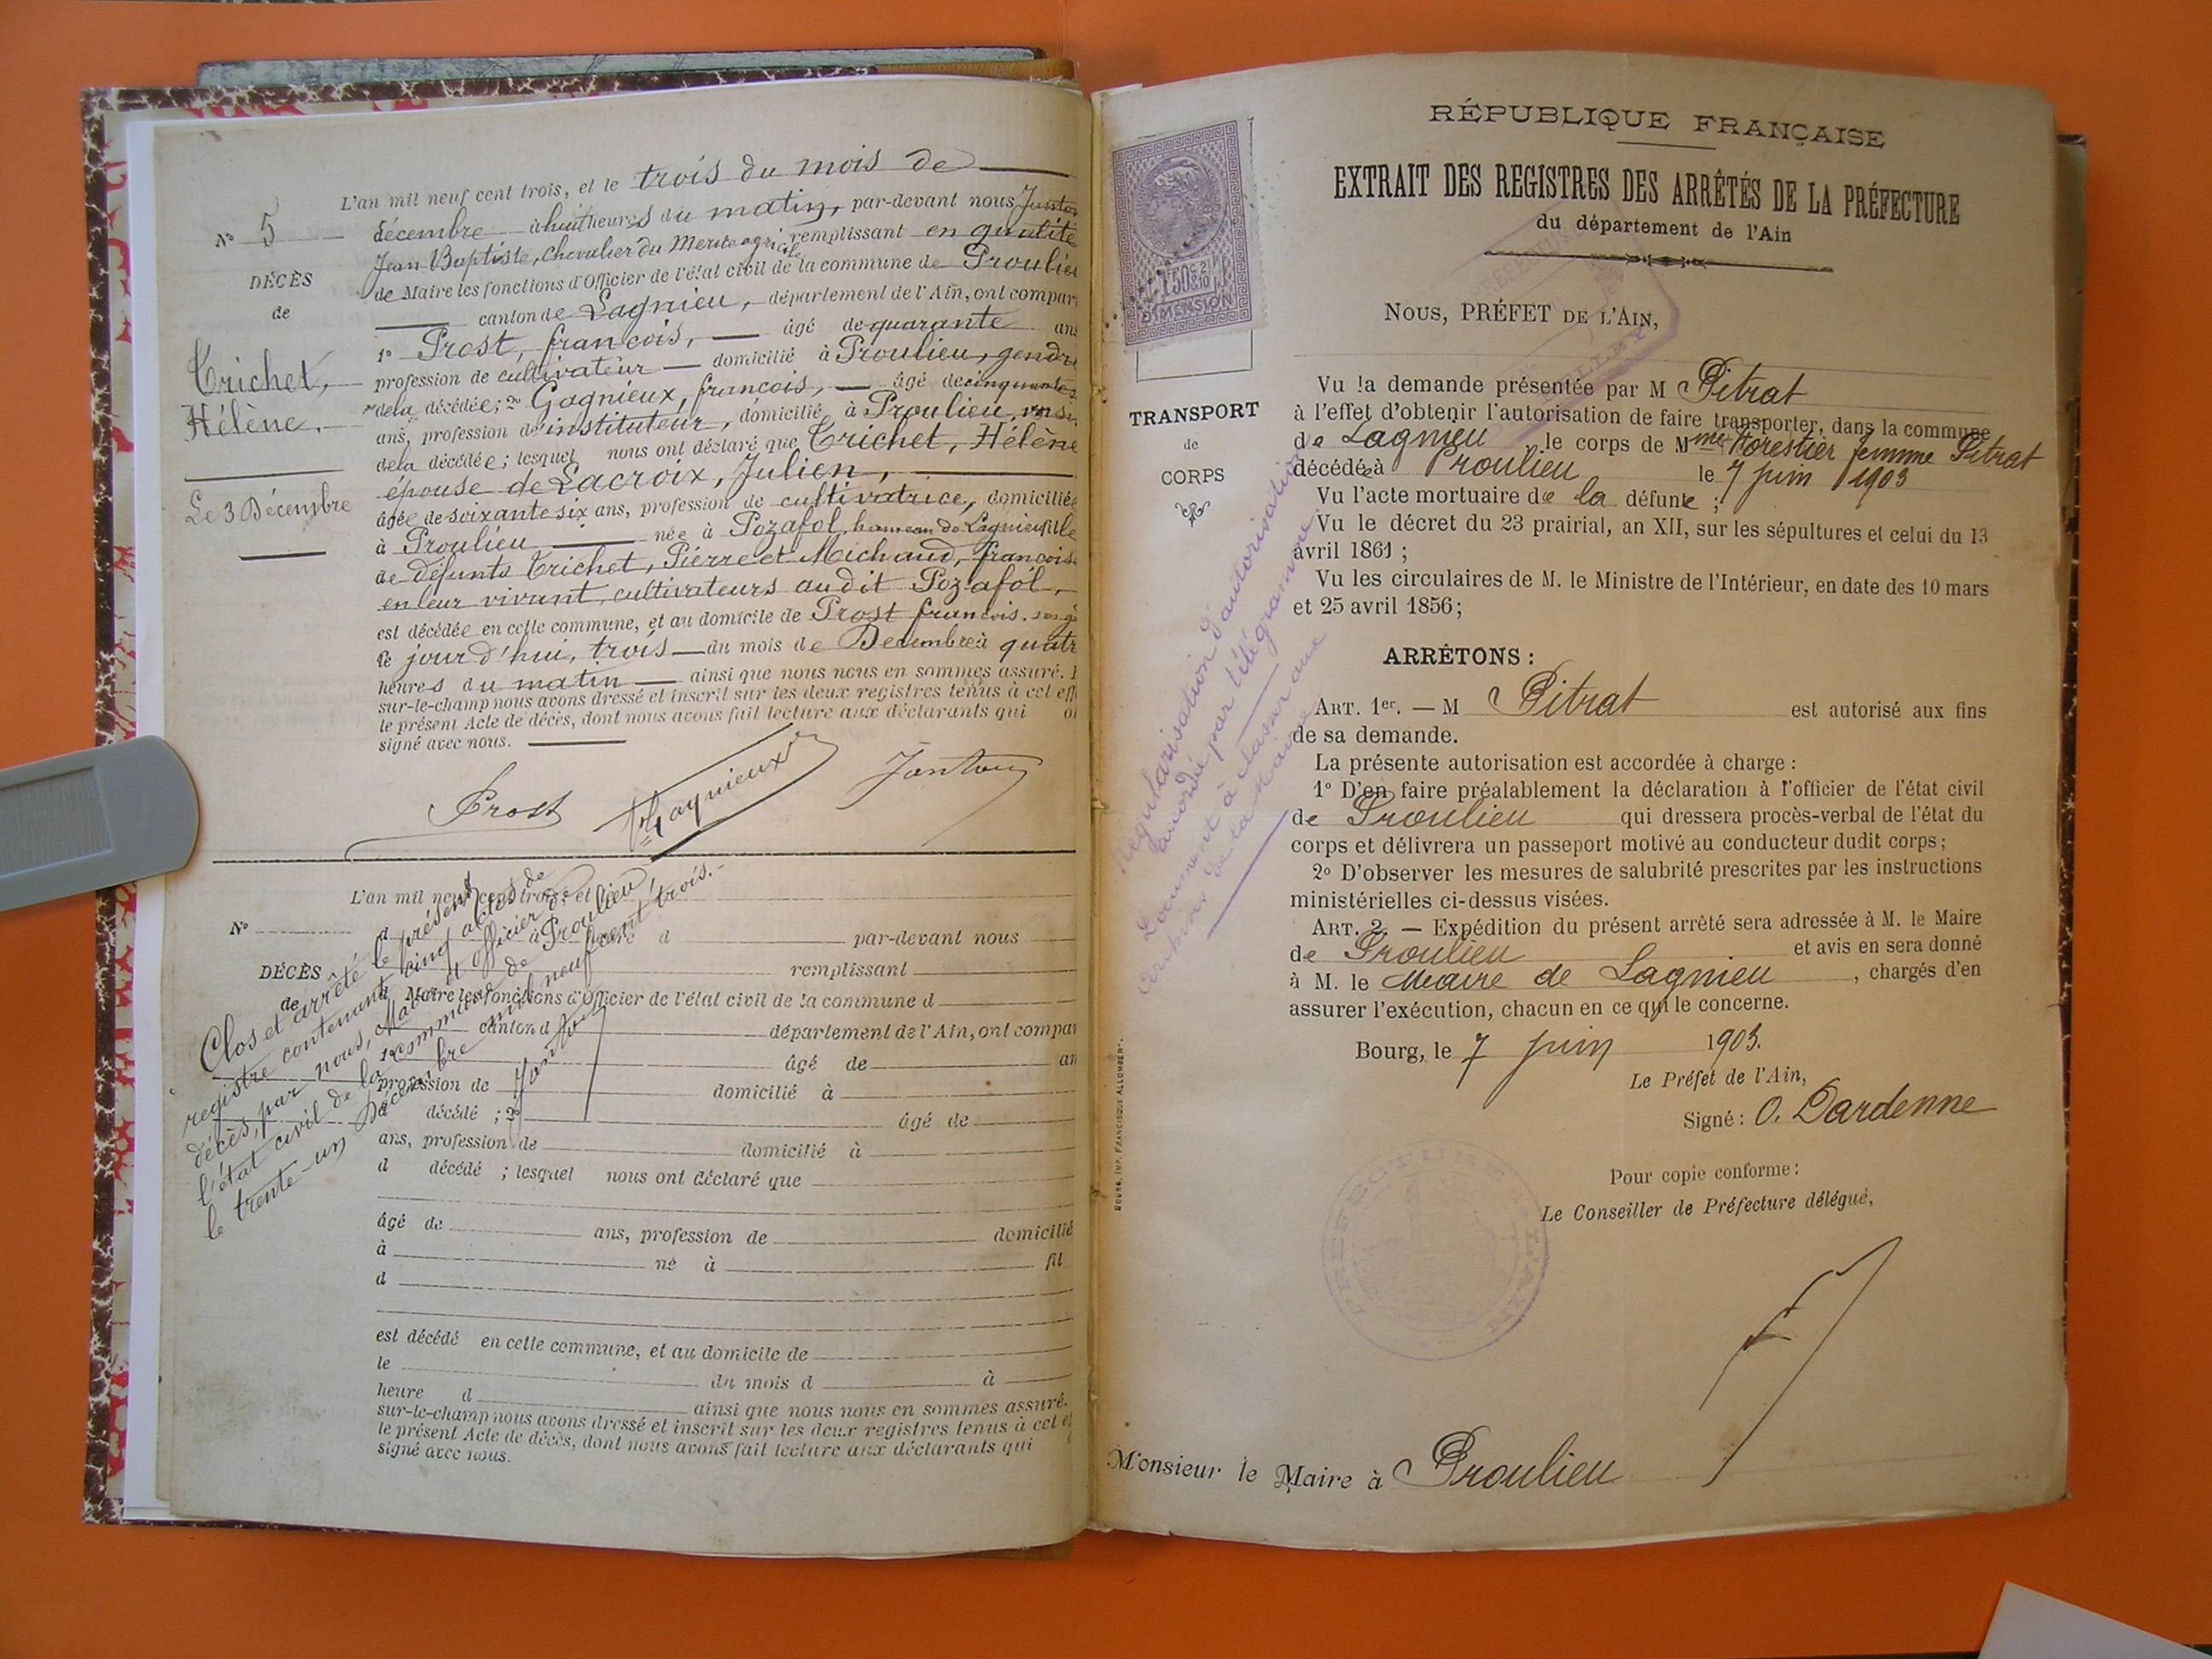 L'an mil neuf cent trois, et le trois du mois de
N° 5 décembre à huit heures du matin, par-devant nous Janton
Jean Baptiste, Chevalier du Mérite agricole remplissant en qualité
DÉCÈS
de Maire les fonctions d'Officier de l'état civil de la commune de Proulieu
de
canton de Lagnieu, département de l'Ain, ont compar
1° Prost, françois, âgé de quarante ans
Trichet,
profession de cultivateur domicilié à Proulieu, gendre
de la décédée; 2° Gagnieux, françois, âgé de cinquante
Hélène.
ans, profession d'instituteur, domicilié à Proulieu, voisin
de la décédée; lesquel nous ont déclaré que Trichet, Hélène
épouse de Lacroix, Julien,
Le 3 Décembre
âgée de soixante six ans, profession de cultivatrice, domiciliée
à Proulieu née à Pozafol, hameau de Lagnieu, fille
de défunts Trichet, Pierre et Michaud, françoise
en leur vivant, cultivateurs audit Pozafol,
est décédée en cette commune, et au domicile de Prost françois, son g
le jour d'hui, trois du mois de Décembre à quatr
heures du matin ainsi que nous nous en sommes assuré.
sur-le-champ nous avons dressé et inscrit sur les deux registres tenus à cet eff
le présent Acte de décès, dont nous avons fait lecture aux déclarants qui o
signé avec nous.
Prost Gagnieux Janton
L'an mil neuf cent trois, et le
N° d à heure d par-devant nous
DÉCÈS remplissant
de Maire les fonctions d'Officier de l'état civil de la commune d
canton d département de l'Ain, ont compar
1° âgé de an
profession de domicilié à
d décédé ; 2° âgé de
ans, profession de domicilié à
d décédé ; lesquel nous ont déclaré que
âgé de ans, profession de domicilié
à né à fil
d
est décédé en cette commune, et au domicile de
le du mois d à
heure d ainsi que nous nous en sommes assuré.
sur-le-champ nous avons dressé et inscrit sur les deux registres tenus à cet ef
le présent Acte de décès, dont nous avons fait lecture aux déclarants qui
signé avec nous.
Clos et arrêté le présent
registre contenant cinq actes de
décès, par nous, Maire et officier de
l'état civil de la commune de Proulieu,
le trente-un Décembre mil neuf cent trois.
Janton
RÉPUBLIQUE FRANÇAISE
EXTRAIT DES REGISTRES DES ARRÊTÉS DE LA PRÉFECTURE
du département de l'Ain
1 50c 2/10
DIMENSION
NOUS, PRÉFET DE L'AIN,
TRANSPORT
de
CORPS
Vu la demande présentée par M Pitrat
à l'effet d'obtenir l'autorisation de faire transporter, dans la commune
de Lagnieu le corps de Mme Forestier femme Pitrat
décédée à Proulieu le 7 juin 1903
Vu l'acte mortuaire de la défunte ;
Vu le décret du 23 prairial, an XII, sur les sépultures et celui du 13
avril 1861 ;
Vu les circulaires de M. le Ministre de l'Intérieur, en date des 10 mars
et 25 avril 1856 ;
ARRÊTONS :
ART. 1er. — M Pitrat est autorisé aux fins
de sa demande.
La présente autorisation est accordée à charge :
1° D'en faire préalablement la déclaration à l'officier de l'état civil
de Proulieu qui dressera procès-verbal de l'état du
corps et délivrera un passeport motivé au conducteur dudit corps ;
2° D'observer les mesures de salubrité prescrites par les instructions
ministérielles ci-dessus visées.
ART. 2. — Expédition du présent arrêté sera adressée à M. le Maire
de Proulieu et avis en sera donné
à M. le Maire de Lagnieu , chargés d'en
assurer l'exécution, chacun en ce qui le concerne.
Bourg, le 7 juin 1903.
Le Préfet de l'Ain,
Signé : O. Dardenne
Pour copie conforme :
Le Conseiller de Préfecture délégué,
PRÉFECTURE AIN
Monsieur le Maire à Proulieu
Régularisation d'autorisation
accordée par télégramme.
Document à classer aux
archives de la Mairie
BOURG, IMP. FRANCISQUE ALLOMBERT.